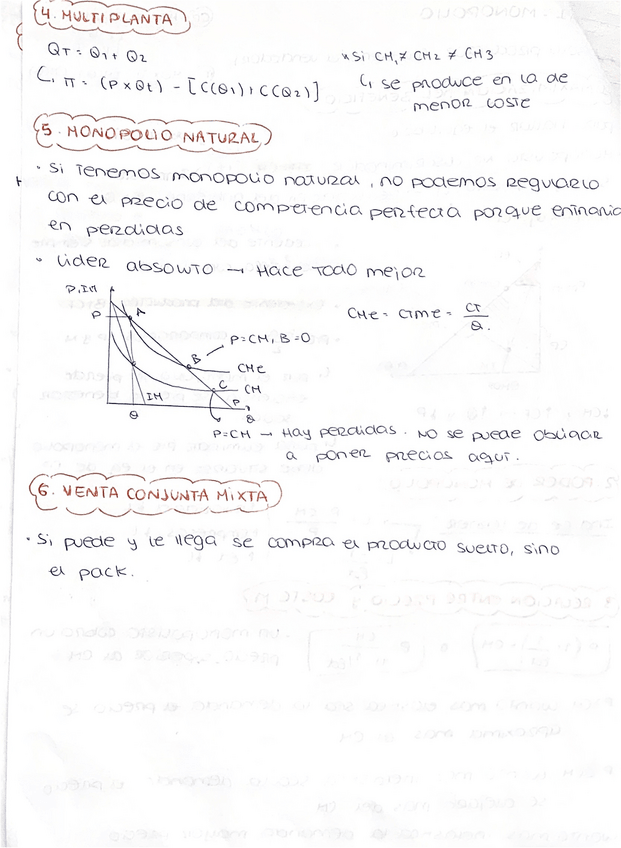 4. MULTIPLANTA
QT = Q1 + Q2
* Si CM1 ≠ CM2 ≠ CM3
↳ π = (P x Qt) - [C(Q1) + C(Q2)]
↳ se produce en la de
menor coste
5. MONOPOLIO NATURAL
· Si Tenemos monopolio natural, no podemos Regularlo
con el precio de competencia perfecta porque entraria
en perdidas
· Lider absoluto → Hace Todo mejor
P, IM
CMe = CTMe = CT/Q.
P
A
P=CM, B=0
B
CMe
C
CM
P
IM
Q
Q
P=CM → Hay perdidas. No se puede Obligar
a poner precios aqui.
6. VENTA CONJUNTA MIXTA
· Si puede y le llega se compra el producto suelto, sino
el pack.